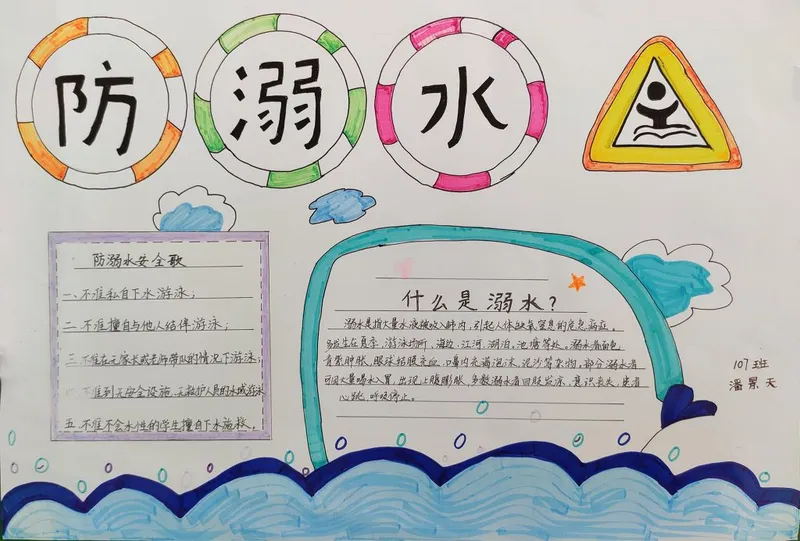 防溺水
防溺水安全歌
一、不准私自下水游泳；
二、不准擅自与他人结伴游泳；
三、不准在无家长或老师带队的情况下游泳；
不准到无安全设施、无救护人员的水域游泳
五、不准不会水性的学生擅自下水施救。
什么是溺水？
溺水是指大量水液被吸入肺内，引起人体缺氧窒息的危急病症。
多发生在夏季，游泳场所、海边、江河、湖泊、池塘等处。溺水者面色
青紫肿胀，眼球结膜充血，口鼻内充满泡沫、泥沙等杂物，部分溺水者
可因大量喝水入胃，出现上腹膨胀，多数溺水者四肢发凉，意识丧失，重者
心跳、呼吸停止。
107班
潘景天